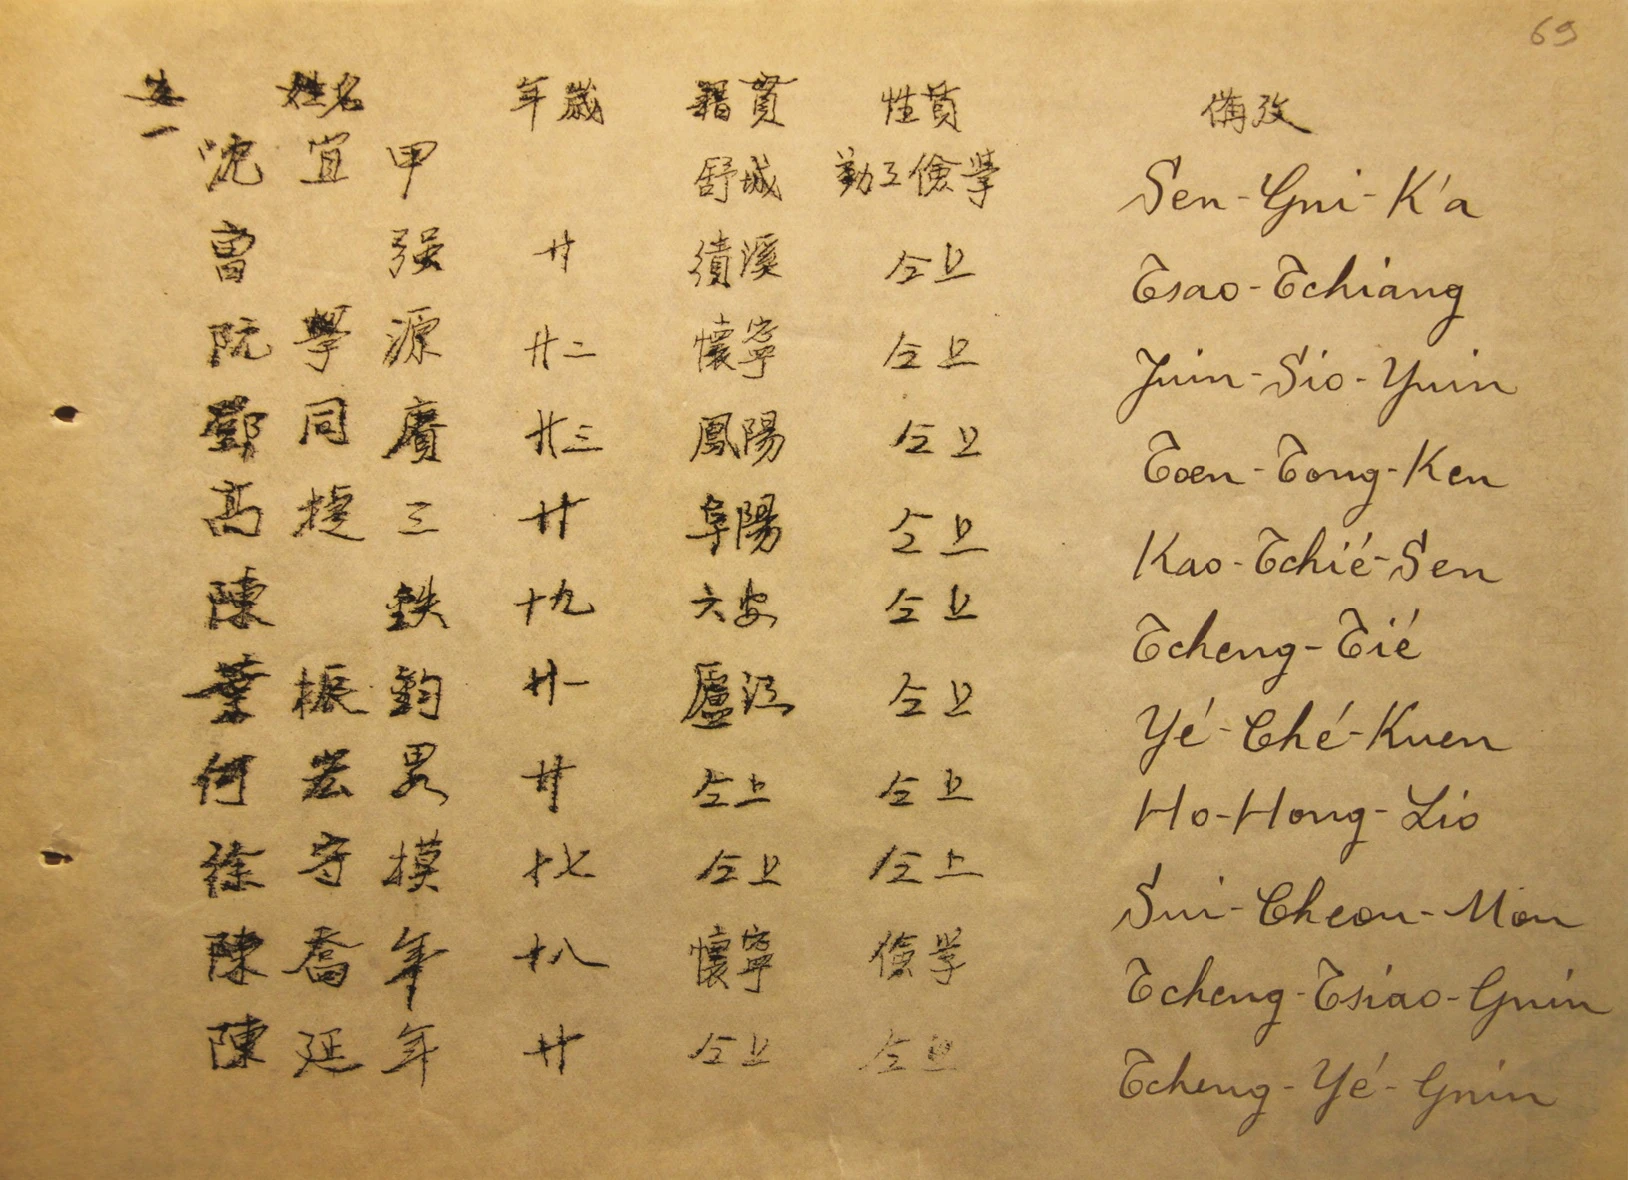 69
安一 姓名 年歲 籍貫 性質 備攷
沈宜甲 舒城 勤工儉學 Sen-Gni-K'a
曹强 廿 績溪 仝上 Tsao-Tchiang
阮學源 廿二 懷寧 仝上 Juin-Sio-Yuin
鄧同賡 廿三 鳳陽 仝上 Toen-Tong-Ken
高捷三 廿 阜陽 仝上 Kao-Tchié-Sen
陳鉄 十九 六安 仝上 Tcheng-Tié
葉振鈞 廿一 廬江 仝上 Yé-Ché-Kuen
何宏 廿 仝上 仝上 Ho-Hong-Lio
徐守摸 十七 仝上 仝上 Sui-Cheou-Mou
陳喬年 十八 懷寧 儉学 Tcheng-Tsiao-Gnin
陳延年 廿 仝上 仝上 Tcheng-Yé-Gnin